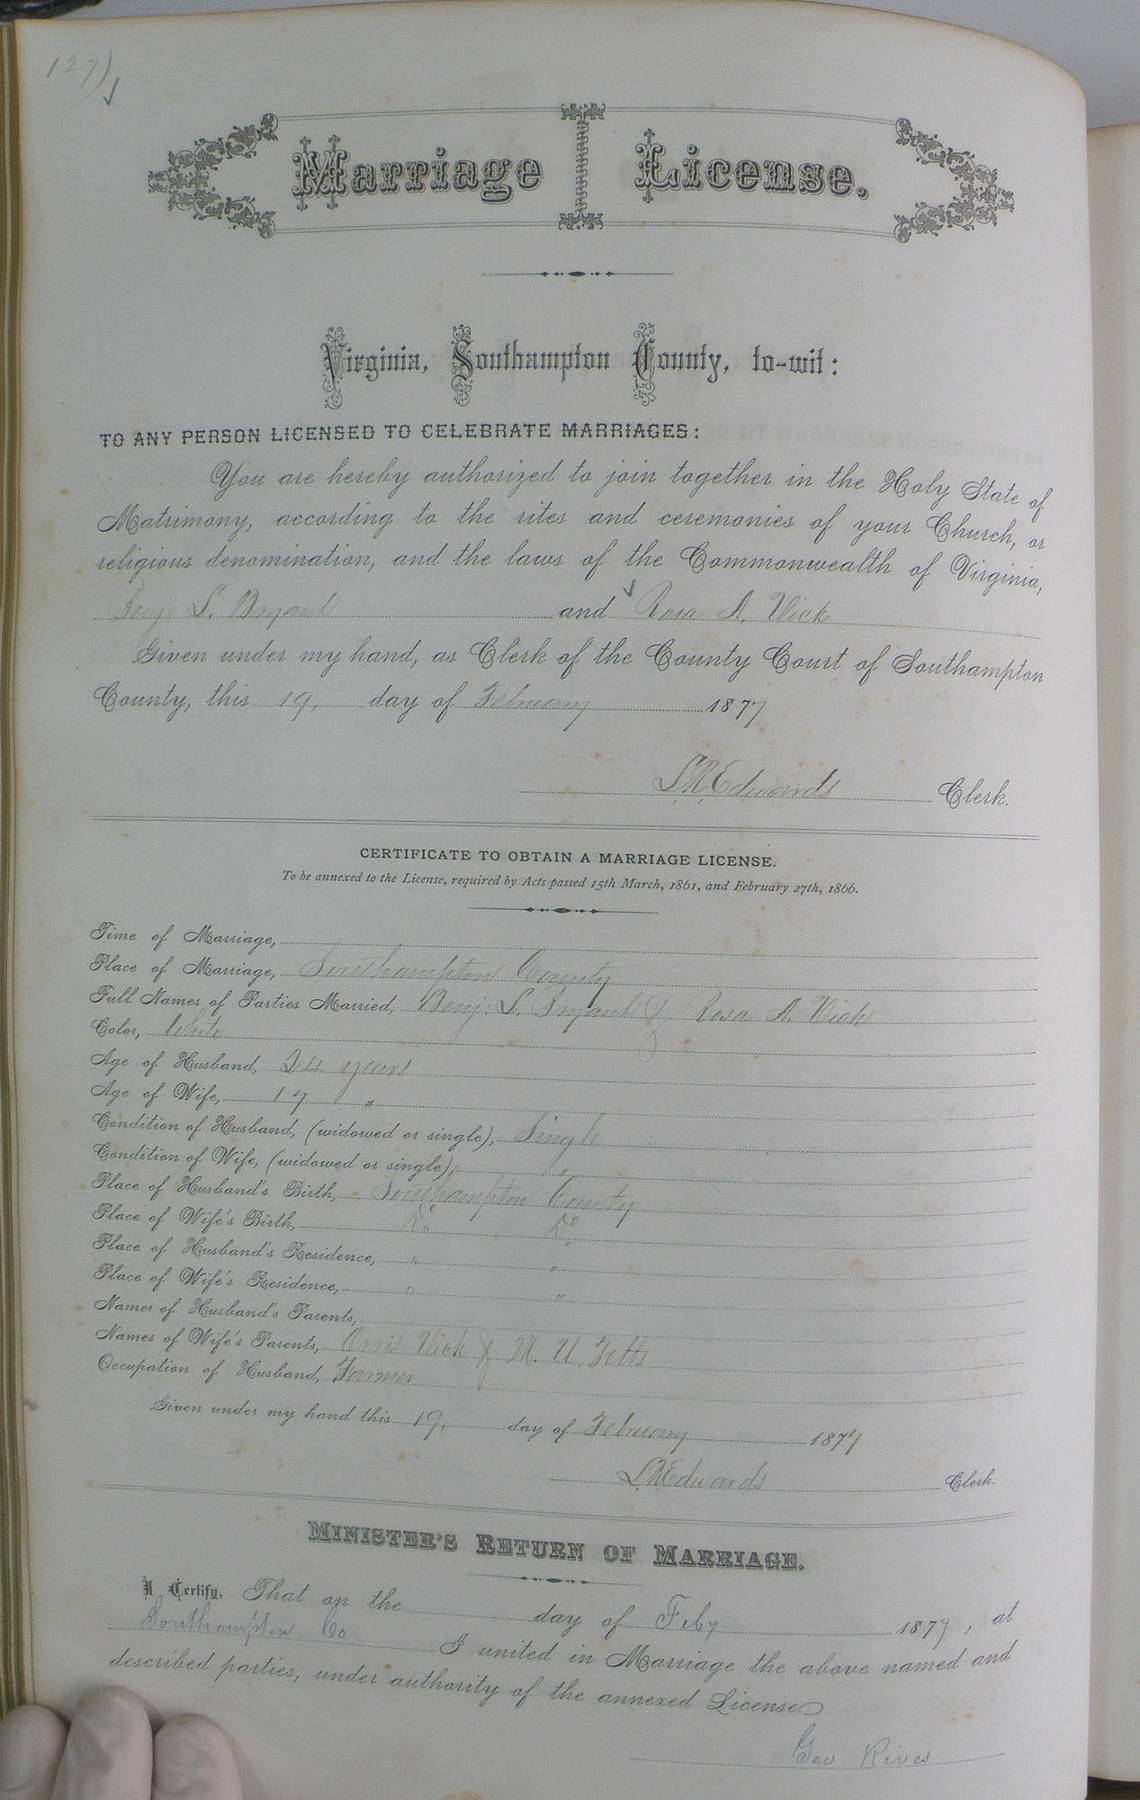 127)
Marriage License.
Virginia, Southampton County, to-wit:
TO ANY PERSON LICENSED TO CELEBRATE MARRIAGES:
You are hereby authorized to join together in the Holy State of
Matrimony, according to the rites and ceremonies of your Church, or
religious denomination, and the laws of the Commonwealth of Virginia,
Benj. L. Bryant and Rosa A. Vick
Given under my hand, as Clerk of the County Court of Southampton
County, this 19, day of February 1877
L.R. Edwards Clerk.
CERTIFICATE TO OBTAIN A MARRIAGE LICENSE.
To be annexed to the License, required by Acts passed 15th March, 1861, and February 27th, 1866.
Time of Marriage,
Place of Marriage, Southampton County
Full Names of Parties Married, Benj. L. Bryant & Rosa A. Vick
Color, White
Age of Husband, 24 years
Age of Wife, 17 "
Condition of Husband, (widowed or single), Single
Condition of Wife, (widowed or single), "
Place of Husband's Birth, Southampton County
Place of Wife's Birth, Do Do
Place of Husband's Residence, " "
Place of Wife's Residence, " "
Names of Husband's Parents,
Names of Wife's Parents, Vick & M. U.
Occupation of Husband, Farmer
Given under my hand this 19, day of February 1877
L.R. Edwards Clerk.
MINISTER'S RETURN OF MARRIAGE.
I Certify, That on the day of Feby 1877, at
Southampton Co I united in Marriage the above named and
described parties, under authority of the annexed License.
Geo Rives